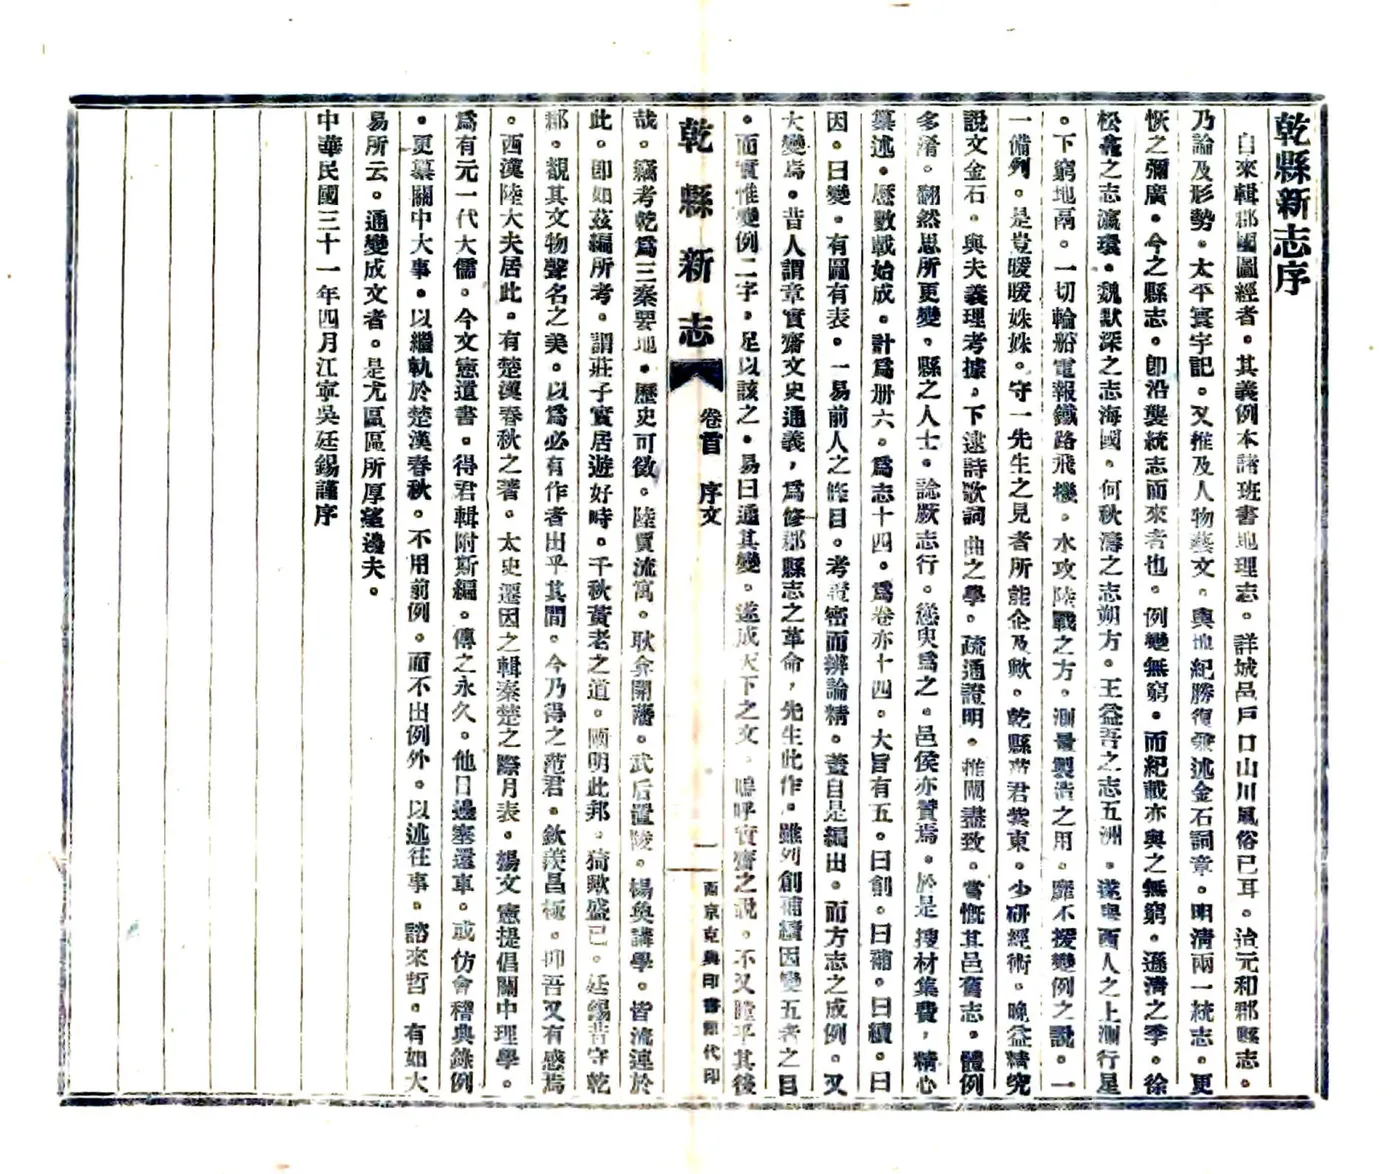 乾縣新志序
自來輯郡國圖經者。其義例本諸班書地理志。詳城邑戶口山川風俗已耳。洽元和郡縣志。
乃論及形勢。太平寰宇記。又推及人物藝文。輿地紀勝復彙述金石詞章。明清兩一統志。更
恢之彌廣。今之縣志。卽沿襲統志而來者也。例變無窮。而紀載亦與之無窮。遜清之季。徐
松龕之志瀛環。魏默深之志海國。何秋濤之志朔方。王益吾之志五洲。遂與西人之上測行星
。下窮地鬲。一切輪船電報鐵路飛機。水攻陸戰之方。測量製造之用。靡不援變例之說。一
一備列。是豈暖暖姝姝。守一先生之見者所能企及歟。乾縣范君紫東。少研經術。晚益精究
說文金石。與夫義理考據。下逮詩歌詞曲之學。疏通證明。推闡盡致。嘗慨其邑舊志。體例
多淆。翻然思所更變。縣之人士。諗厥志行。慫臾爲之。邑侯亦贊焉。於是搜材集費，精心
纂述。歷數載始成。計爲册六。爲志十四。爲卷亦十四。大旨有五。曰創。曰補。曰續。曰
因。曰變。有圖有表。一易前人之條目。考證密而辨論精。蓋自是編出。而方志之成例。又
大變焉。昔人謂章實齋文史通義，爲修郡縣志之革命，先生此作。雖列創補續因變五者之目
。而實惟變例二字，足以該之。易曰通其變。遂成天下之文。嗚呼實齋之說。不又瞠乎其後
乾縣新志
卷首 序文
一
西京克興印書館代印
哉。竊考乾爲三秦要地。歷史可徵。陸賈流寓。耿弇開藩。武后置陵。楊奐講學。皆流連於
此。卽如茲編所考。謂莊子實居遊好畤。千秋黃老之道。闡明此邦。猗歟盛已。廷錫昔守乾
郡。觀其文物聲名之美。以爲必有作者出乎其間。今乃得之范君。欽羨曷極。抑吾又有感焉
。西漢陸大夫居此。有楚漢春秋之著。太史遷因之輯秦楚之際月表。楊文憲提倡關中理學。
爲有元一代大儒。今文憲遺書。得君輯附斯編。傳之永久。他日邊塞還車。或仿會稽典錄例
。更纂關中大事。以繼軌於楚漢春秋。不用前例。而不出例外。以述往事。諗來哲。有如大
易所云。通變成文者。是尤區區所厚望邊夫。
中華民國三十一年四月江寧吳廷錫謹序